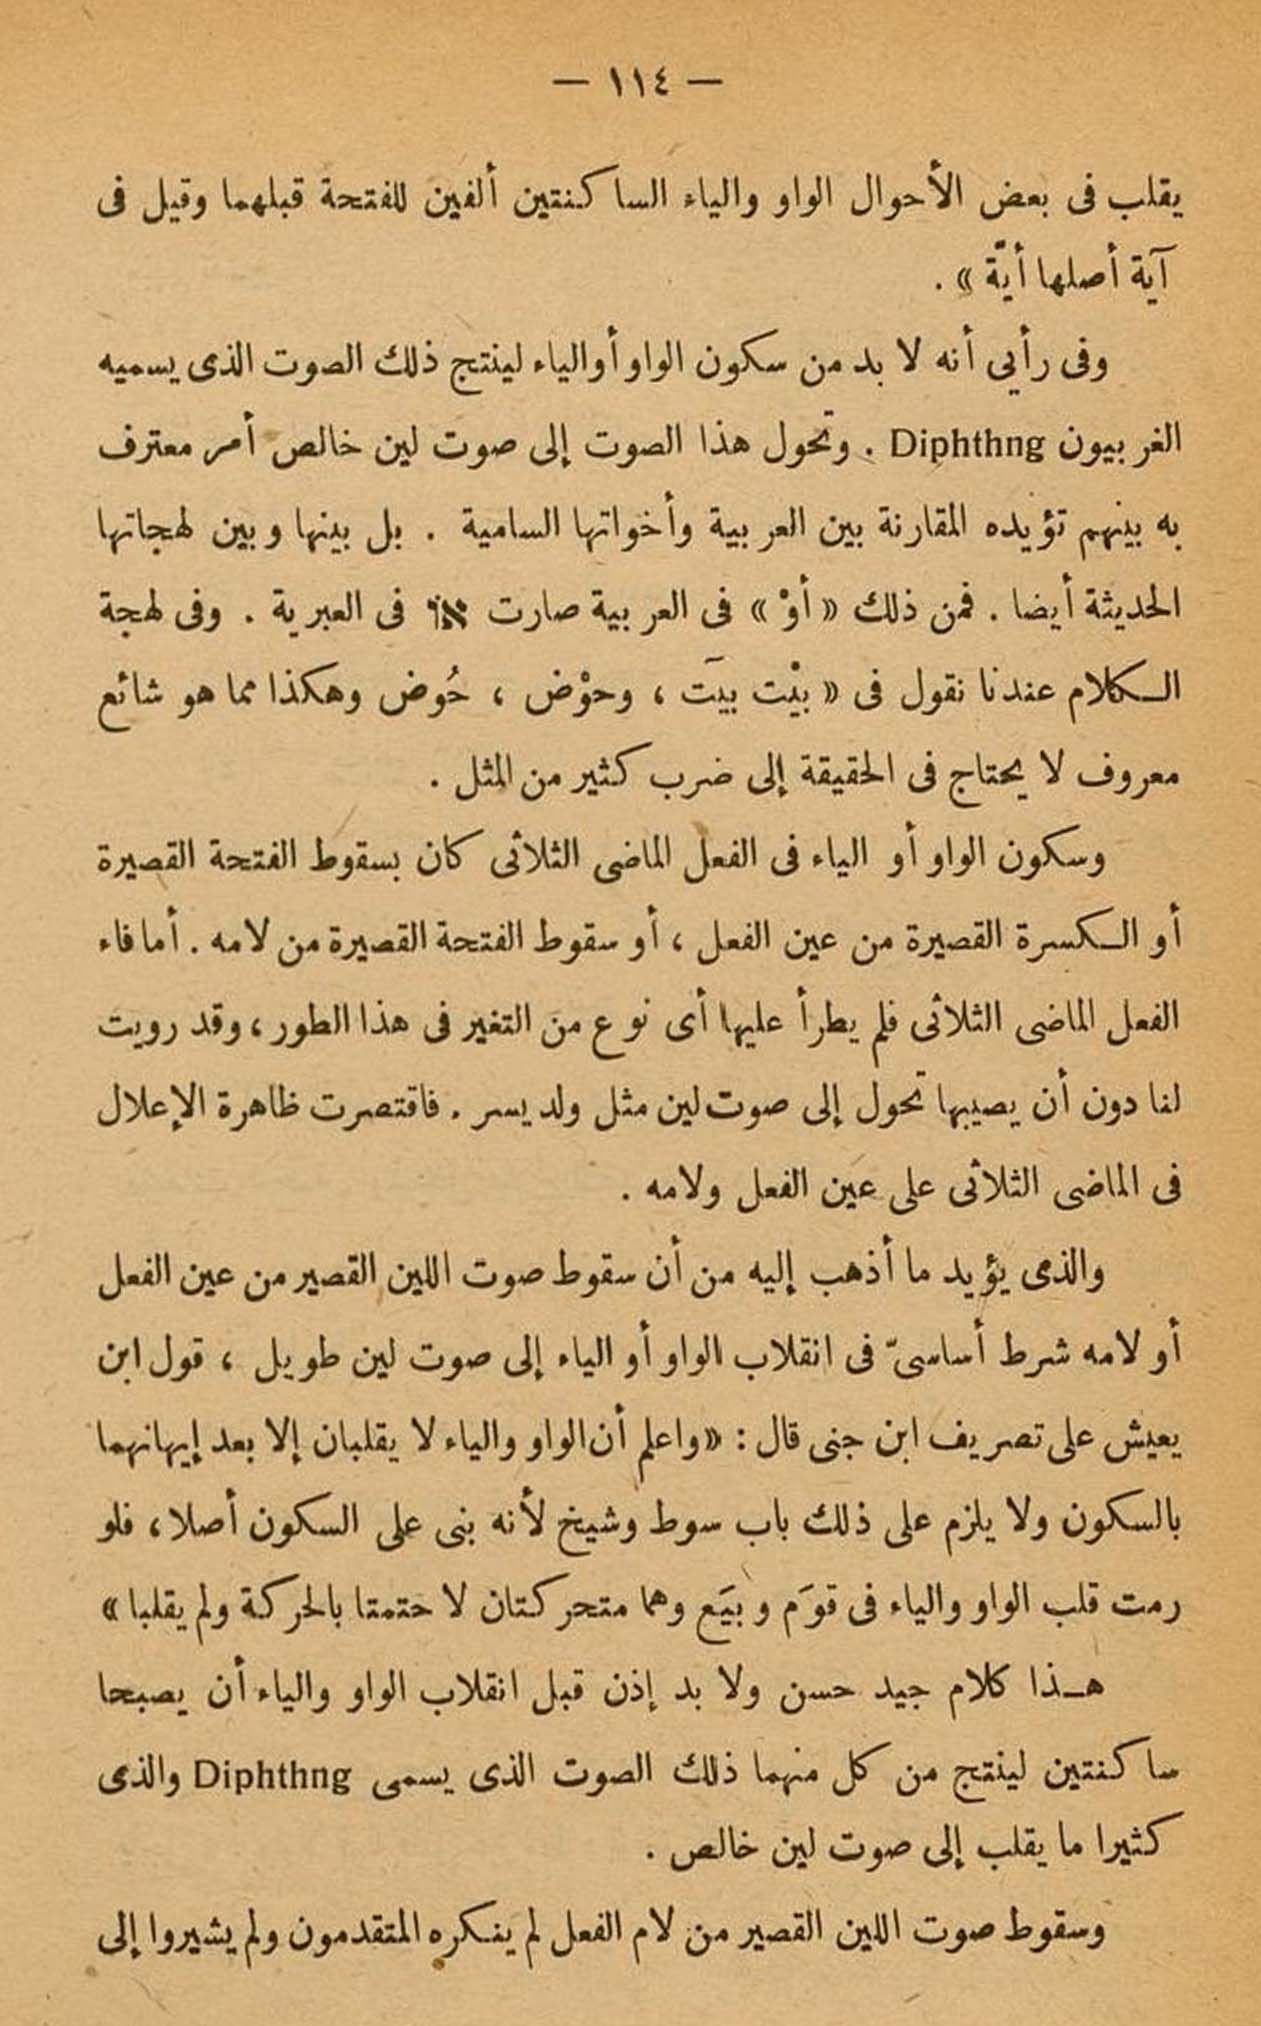 — ١١٤ —
يقلب فى بعض الأحوال الواو والياء الساكنتين ألفين للفتحة قبلهما وقيل فى
آية أصلها أيّة » .
وفى رأيى أنه لا بد من سكون الواو أو الياء لينتج ذلك الصوت الذى يسميه
الغربيون Diphthng . وتحول هذا الصوت إلى صوت لين خالص أمر معترف
به بينهم تؤيده المقارنة بين العربية وأخواتها السامية . بل بينها وبين لهجاتها
الحديثة أيضا . فمن ذلك « أوْ » فى العربية صارت או فى العبرية . وفى لهجة
الكلام عندنا نقول فى « بيْت بيَت ، وحوْض ، حُوض وهكذا مما هو شائع
معروف لا يحتاج فى الحقيقة إلى ضرب كثير من المثل .
وسكون الواو أو الياء فى الفعل الماضى الثلاثى كان بسقوط الفتحة القصيرة
أو الكسرة القصيرة من عين الفعل ، أو سقوط الفتحة القصيرة من لامه . أما فاء
الفعل الماضى الثلاثى فلم يطرأ عليها أى نوع من التغير فى هذا الطور ، وقد رويت
لنا دون أن يصيبها تحول إلى صوت لين مثل ولد يسر . فاقتصرت ظاهرة الإعلال
فى الماضى الثلاثى على عين الفعل ولامه .
والذى يؤيد ما أذهب إليه من أن سقوط صوت اللين القصير من عين الفعل
أو لامه شرط أساسىّ فى انقلاب الواو أو الياء إلى صوت لين طويل ، قول ابن
يعيش على تصريف ابن جنى قال : « واعلم أن الواو والياء لا يقلبان إلا بعد إيهانهما
بالسكون ولا يلزم على ذلك باب سوط وشيخ لأنه بنى على السكون أصلا ، فلو
رمت قلب الواو والياء فى قوَم وبيَع وهما متحركتان لا حتمتا بالحركة ولم يقلبا »
هذا كلام جيد حسن ولا بد إذن قبل انقلاب الواو والياء أن يصبحا
ساكنتين لينتج من كل منهما ذلك الصوت الذى يسمى Diphthng والذى
كثيرا ما يقلب إلى صوت لين خالص .
وسقوط صوت اللين القصير من لام الفعل لم ينكره المتقدمون ولم يشيروا إلى